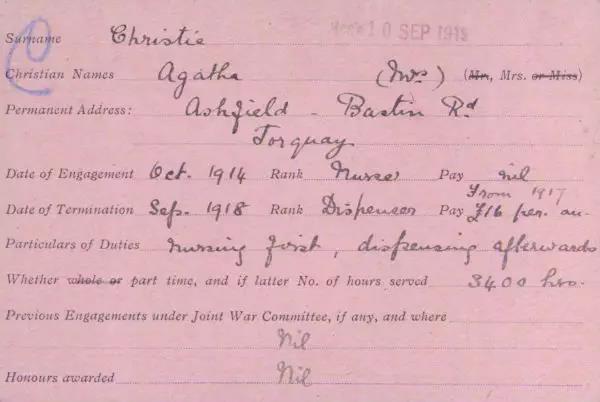 10 SEP 1918
Surname Christie
Christian Names Agatha (Mrs) (Mr, Mrs. or Miss)
Permanent Address: Ashfield - Bartin Rd
Torquay
Date of Engagement Oct. 1914 Rank Nurse Pay nil
From 1917
Date of Termination Sep. 1918 Rank Dispenser Pay £16 per. an.
Particulars of Duties nursing first, dispensing afterwards
Whether whole or part time, and if latter No. of hours served 3400 hrs.
Previous Engagements under Joint War Committee, if any, and where
Nil
Honours awarded Nil